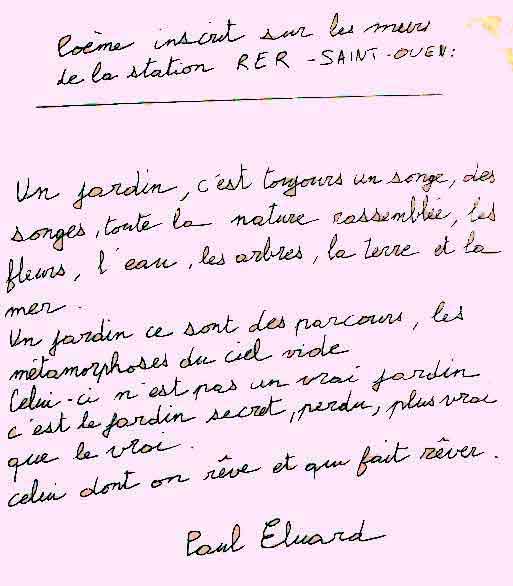 Poème inscrit sur les murs
de la station RER - SAINT-OUEN :
Un jardin, c'est toujours un songe, des
songes, toute la nature rassemblée, les
fleurs, l'eau, les arbres, la terre et la
mer.
Un jardin ce sont des parcours, les
métamorphoses du ciel vide
Celui-ci n'est pas un vrai jardin
c'est le jardin secret, perdu, plus vrai
que le vrai.
celui dont on rêve et qui fait rêver.
Paul Eluard